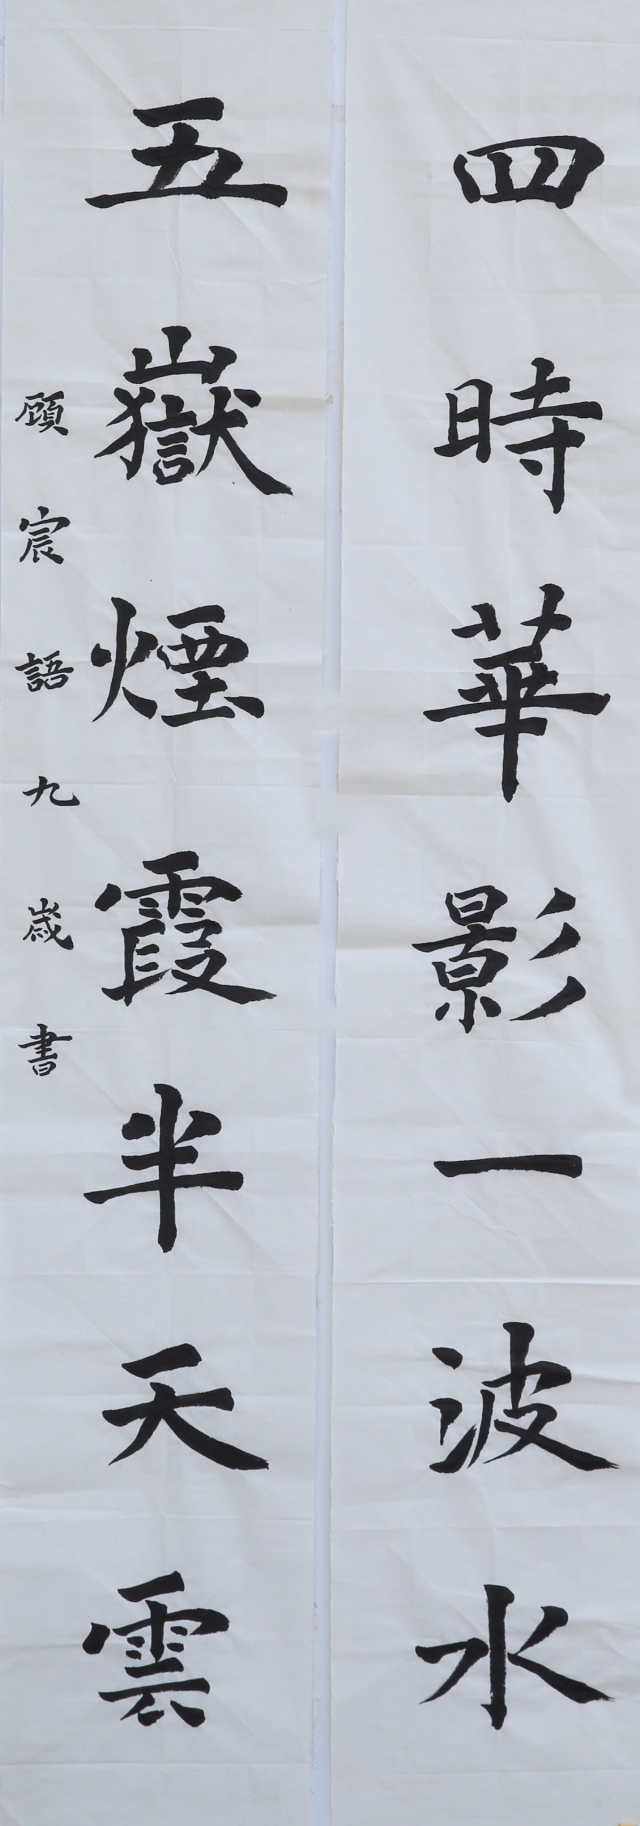 四時華影一波水
五嶽煙霞半天雲
顧宸語九歲書